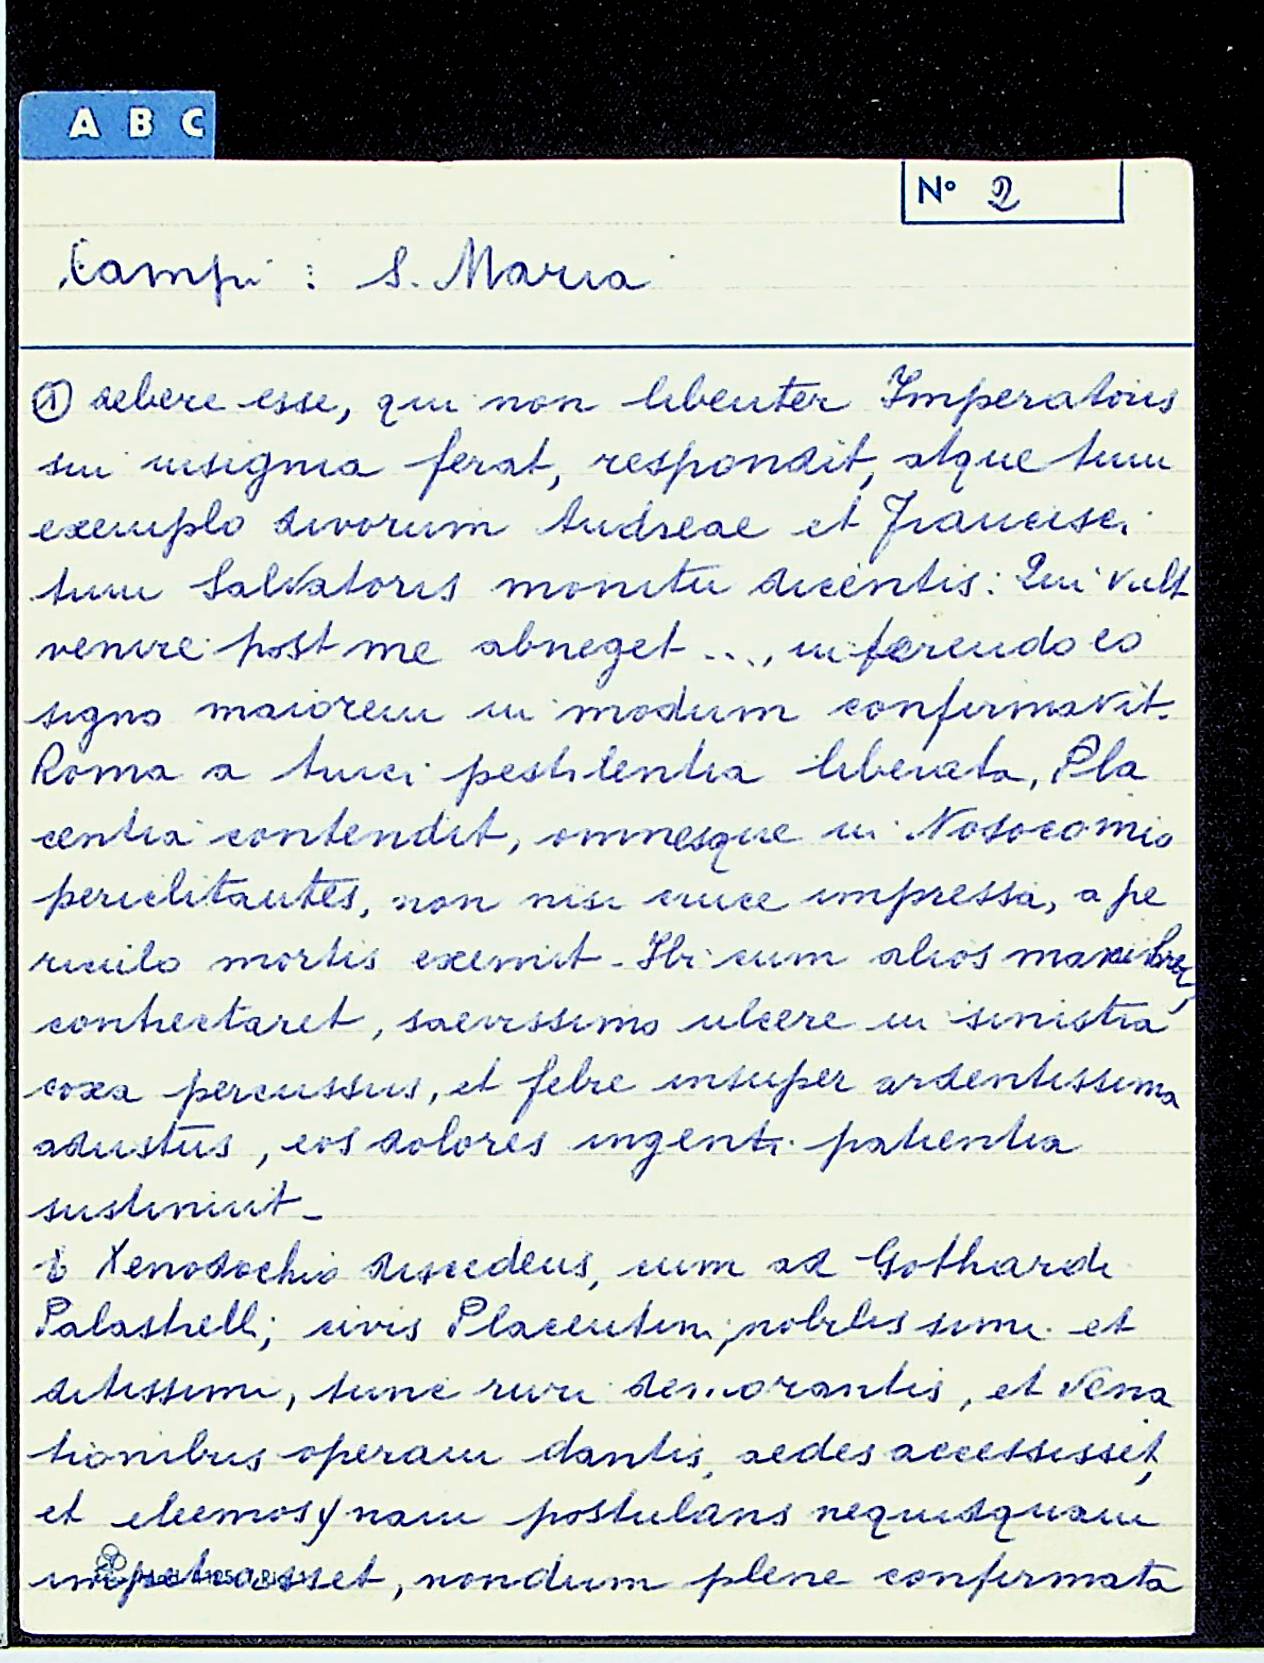 A B C
N° 2
Campi : S. Maria
① debere esse, qui non libenter Imperatoris
sui insignia ferat, respondit, atque tum
exemplo divorum Andreae et Francisci
tum Salvatoris monitu dicentis: Qui vult
venire post me abneget ..., in ferendo eo
signo maiorem in modum confirmavit.
Roma a truci pestilentia liberata, Pla
centia contendit, omnesque in Nosocomio
periclitantes, non nisi cruce impressa, a pe
riculo mortis exemit - Ibi cum alios
contrectaret, saevissimo ulcere in sinistra
coxa percussus, et febre insuper ardentissima
adustus, eos dolores ingenti patientia
sustinuit -
E Xenodochio discedens, cum ad Gothardi
Palastrelli, civis Placentini, nobilissimi et
ditissimi, tunc ruri demorantis, et vena
tionibus operam dantis, aedes accessisset,
et eleemosynam postulans nequidquam
impetrasset, nondum plene confirmata